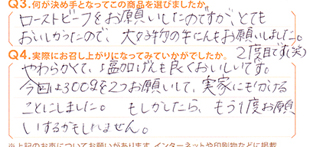 Q3.何が決め手となってこの商品を選びましたか。
ローストビーフをお願いしたのですが、とても
おいしかったので、大好物の牛たんをお願いしました。
Q4.実際にお召し上がりになってみていかがでしたか。
2度目です(笑)
やわらかくて、塩加げんも良くおいしいです。
今回は300gを2つお願いして、実家にもかける
ことにしました。もしかしたら、もう1度お願い
いするかもしれません。
※上記のお声についてお願いがあります。インターネットや印刷物などに掲載